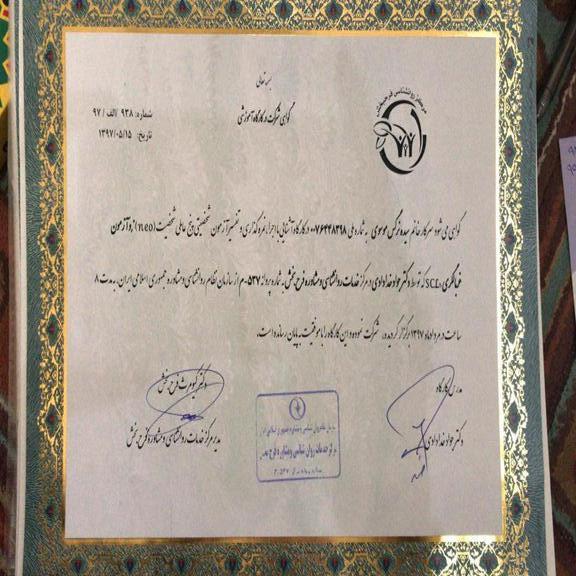 بسمه تعالی
گواهی شرکت در کارگاه آموزشی
شماره: ۹۳۸ /الف / ۹۷
تاریخ: ۱۳۹۷/۰۵/۱۵
مرکز روانشناسی فرحبخش
گواهی می شود سرکار خانم سیده نرگس موسوی به شماره ملی در کارگاه آشنایی با اجرا، نمره گذاری و تفسیر آزمون شخصیتی پنج عاملی شخصیت (neo) نئو و آزمون
غربالگری SCL که توسط دکتر جواد خداداوی در مرکز خدمات روانشناسی و مشاوره فرح بخش به شماره پروانه ۵۴۷-م از سازمان نظام روانشناسی و مشاوره جمهوری اسلامی ایران، به مدت ۸
ساعت در مرداد ماه ۱۳۹۷ برگزار گردیده، شرکت نموده و این کارگاه را با موفقیت به پایان رسانده است.
مدرس کارگاه
دکتر جواد خداداوی
دکتر کیومرث فرح بخش
مدیر مرکز خدمات روانشناسی و مشاوره فرح بخش
سازمان نظام روان شناسی و مشاوره جمهوری اسلامی ایران
مرکز خدمات روان شناسی و مشاوره فرح بخش